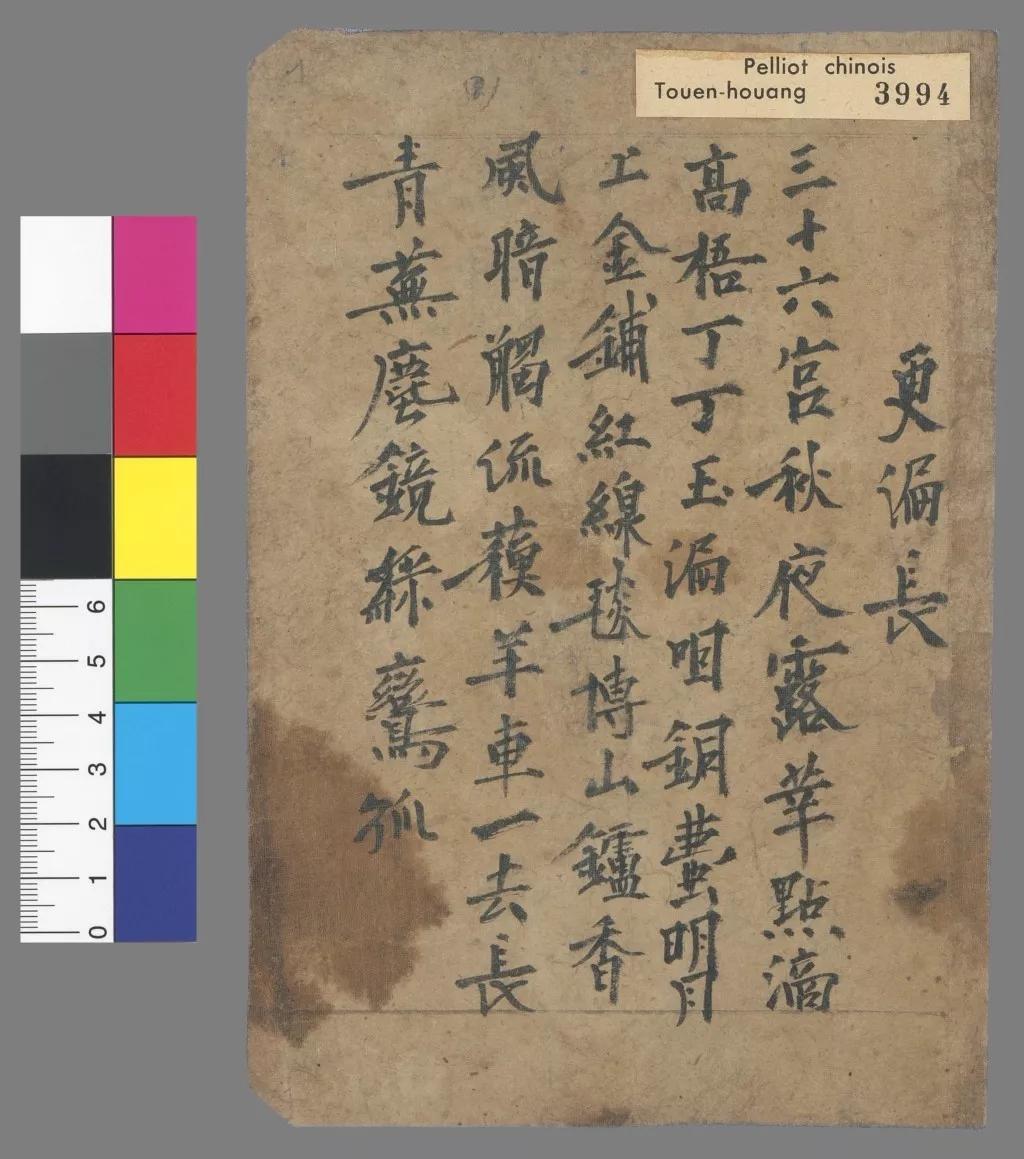 Pelliot chinois
Touen-houang 3994
更漏長
三十六宮秋夜露華點滴
高梧丁丁玉漏咽銅壺明月
上金鋪紅線毯博山鑪香
風暗觸流蘇羊車一去長
青蕪塵鏡綵鸞孤
6
5
4
3
2
1
0